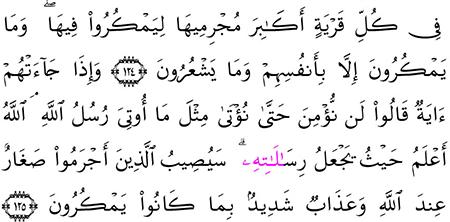 فِى كُلِّ قَرْيَةٍ أَكَٰبِرَ مُجْرِمِيهَا لِيَمْكُرُواْ فِيهَاۖ وَمَا
يَمْكُرُونَ إِلَّا بِأَنفُسِهِمْ وَمَا يَشْعُرُونَ ﴿١٢٤﴾ وَإِذَا جَآءَتْهُمْ
ءَايَةٌ قَالُواْ لَن نُّؤْمِنَ حَتَّىٰ نُؤْتَىٰ مِثْلَ مَا أُوتِىَ رُسُلُ اللَّهِۘ اللَّهُ
أَعْلَمُ حَيْثُ يَجْعَلُ رِسَٰلَٰتِهِۦۗ سَيُصِيبُ الَّذِينَ أَجْرَمُواْ صَغَارٌ
عِندَ اللَّهِ وَعَذَابٌ شَدِيدٌۢ بِمَا كَانُواْ يَمْكُرُونَ ﴿١٢٥﴾